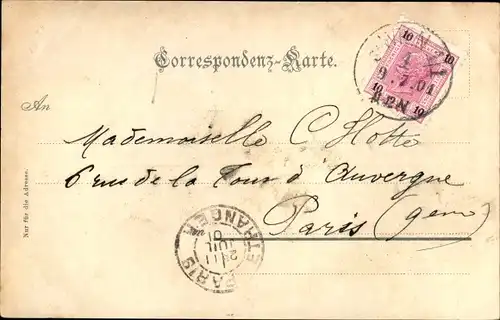 Correspondenz-Karte.
10 10
9.7.01
10 10
An
Mademoiselle C Hotte
6 rue de la Tour d'Auvergne
Paris (9eme)
Nur für die Adresse.
PARIS ETRANGER
11
JUIL
01